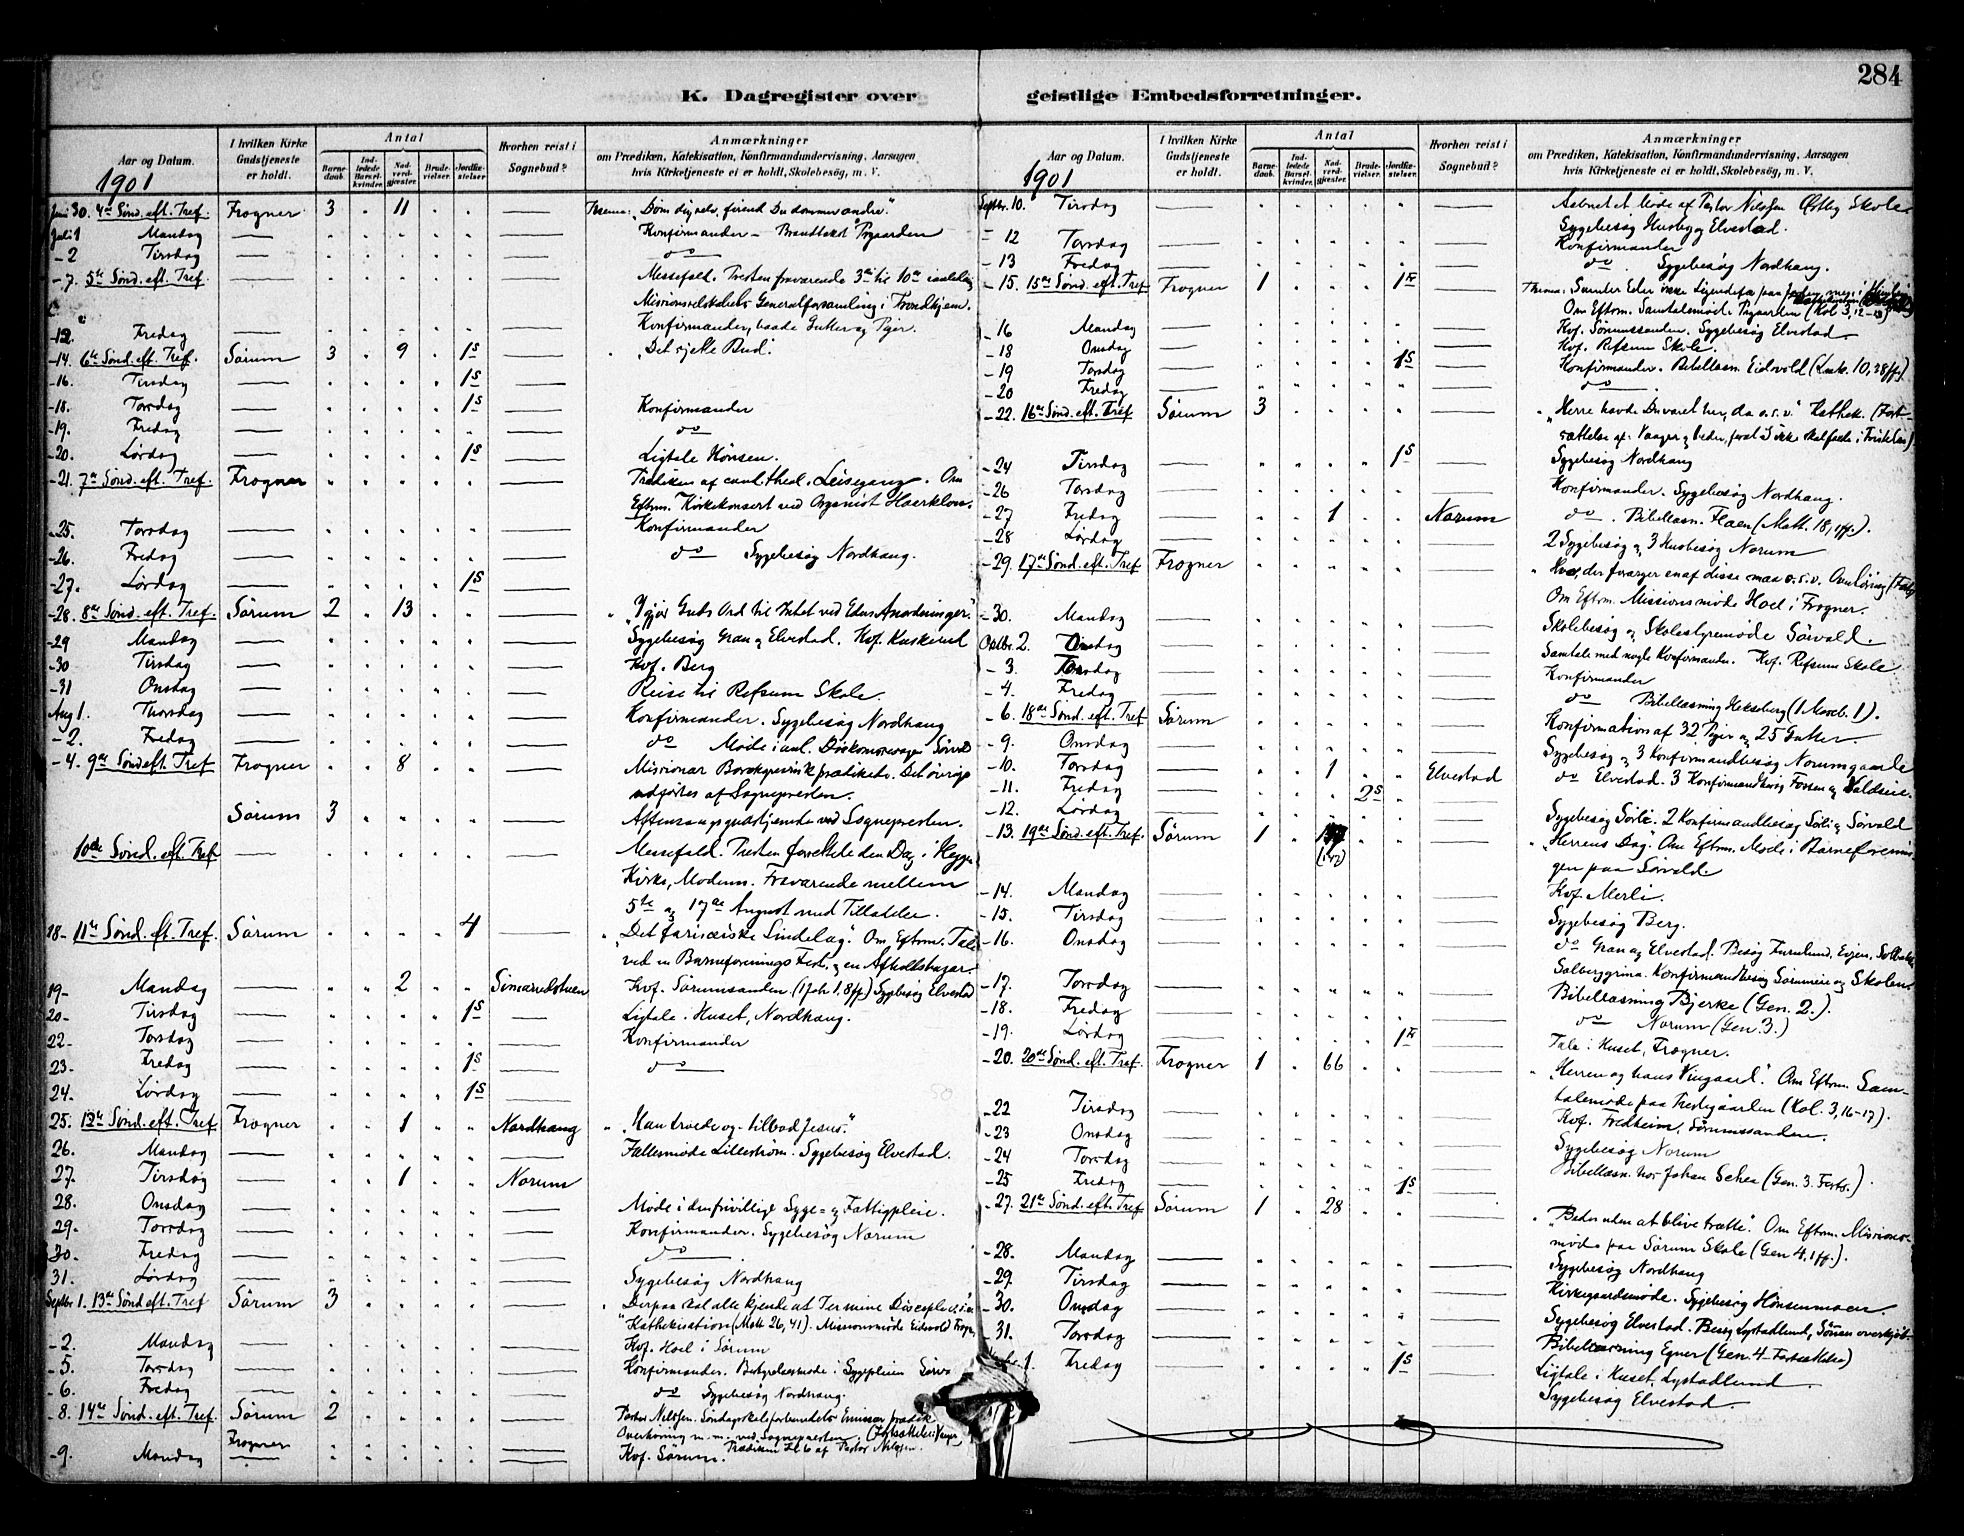 284
K. Dagregister over geistlige Embedsforretninger.
Aar og Datum.
I hvilken Kirke Gudstjeneste er holdt.
Antal
Barnedaab.
Indledede Barselkvinder.
Nadverdgjæster.
Brudevielser.
Jordfæstelser.
Hvorhen reist i Sognebud?
Anmærkninger
om Prædiken, Katekisation, Konfirmandundervisning, Aarsagen
hvis Kirketjeneste ei er holdt, Skolebesøg, m. V.
1901
Juni 30. 4de Sønd. eft. Tref. Frogner 3 " 11 " " Thema: "Døm dig selv, førend Du dømmer andre."
Juli 1 Mandag — Konfirmander
- 2 Tirsdag — do
- 7. 5te Sønd. eft. Tref. — Messefald. Presten fraværende 3die til 10de
Missionsselskabets Generalforsamling i Trondhjem.
- 12 Fredag — Konfirmander, baade Gutter og Piger.
- 14. 6te Sønd. eft. Tref. Sørum 3 " 9 " 1S "Det sjette Bud."
- 16. Tirsdag — 1S —
- 18. Torsdag — 1S — Konfirmander
- 19. Fredag — do
- 20. Lørdag — 1S — Ligtale Hønsen.
- 21. 7de Sønd. eft. Tref. Frogner — Prædiken af cand. theol. Leisegang. Om
Eftm. Kirkekonsert ved Organist
- 25. Torsdag — Konfirmander
- 26. Fredag — do Sygebesøg Nordhaug.
- 27. Lørdag — 1S —
- 28. 8de Sønd. eft. Tref. Sørum 2 " 13 " " — "I gjør Guds Ord til Intet ved Eders Anordninger."
- 29 Mandag — Sygebesøg Gran og Elvestad. Kof.
- 30 Tirsdag — Kof. Berg
- 31 Onsdag — Reise til Refsum Skole.
Aug 1. Thorsdag — Konfirmander. Sygebesøg Nordhaug
- 2. Fredag — do Møde i anl.
- 4. 9de Sønd. eft. Tref Frogner " " 8 " " — Missionær prædikede. Det øvrige
udførtes af Sognepresten.
Sørum 3 — Aftensangsgudstjeneste ved Sognepresten.
10de Sønd. eft. Tref — Messefald. Presten forrettede den Dag i Heggen
Kirke, Modum. Fraværende mellem
5te og 17de August med Tilladelse.
18- 11te Sønd. eft. Tref. Sørum " " " " 4 — "Det farisæiske Sindelag". Om Eftm. Tale
ved en Barneforenings Fest, og en Afholdsbazar.
19- Mandag — 2 " " Simarudstuen Kof. Sørumsanden (1 Joh 1,8ff) Sygebesøg Elvestad
20- Tirsdag — 1S — Ligtale i Huset, Nordhaug.
22- Torsdag — Konfirmander
23. Fredag — 1S — do
24. Lørdag — 1S —
25. 12te Sønd. eft. Tref Frogner " " 1 " " Nordhaug "Han troede og tilbad Jesus".
26. Mandag — Fællesmøde Lillestrøm. Sygebesøg Elvestad.
27. Tirsdag — 1 " " Norum
28. Onsdag — Møde i den frivillige Syge- og Fattigpleie.
29. Torsdag — Konfirmander. Sygebesøg Norum
30. Fredag — do
31. Lørdag — Sygebesøg Nordhaug
Septbr 1. 13de Sønd. eft. Tref Sørum 3 — "Derpaa skal alle kjende at I ere mine Disciple
Kathekisation (Matt 26,41). Missionsmøde Eidsvold
- 2. Mandag — Kof. Hoel i Sørum
- 5. Torsdag — Konfirmander. Bestyrelsesmøde i Sygepleien
- 6. Fredag — do Sygebesøg Nordhaug.
- 8. 14de Sønd. eft. Tref. Sørum 2 — Pastor Nilssen. Søndagsskoleforbundets Emissær
Overhøring m. m. ved Sognepresten.
Frogner Prædiken Kl. 6 af Pastor Nilssen.
- 9. Mandag — Kof. Sørum.
Aar og Datum.
I hvilken Kirke Gudstjeneste er holdt.
Antal
Barnedaab.
Indledede Barselkvinder.
Nadverdgjæster.
Brudevielser.
Jordfæstelser.
Hvorhen reist i Sognebud?
Anmærkninger
om Prædiken, Katekisation, Konfirmandundervisning, Aarsagen
hvis Kirketjeneste ei er holdt, Skolebesøg, m. V.
1901
Septbr. 10. Tirsdag — Aabnet et Møde af Pastor Nilssen Østby Skole.
- 12 Torsdag — Sygebesøg Husby og Elvestad.
Konfirmander
- 13 Fredag — do. Sygebesøg Nordhaug.
- 15. 15de Sønd. eft. Tref. Frogner 1 " " " 1F — Thema: Samler Eder ikke Liggendefæ paa Jorden, men i
Om Eftm. Samtalemøde. (Kol 3,12-
- 16 Mandag — Kof. Sørumssanden. Sygebesøg Elvestad.
- 18 Onsdag — Kof. Refsum Skole.
- 19 Torsdag — 1S — Konfirmander. Bibellæsn. Eidsvold (Luk. 10,38ff).
- 20 Fredag — do
- 22. 16de Sønd. eft. Tref Sørum 3 — "Herre havde Du været her, da o.s.v." Kathek. (Fort-
sættelse af: Vaager og beder, forat I ikke skal falde i Fristelse)
- 24 Tirsdag — 1S — Sygebesøg Nordhaug
- 26 Torsdag — Konfirmander. Sygebesøg Nordhaug.
- 27 Fredag — 1 " " Norum do. Bibellæsn. Haen (Matt. 18,1ff).
- 28 Lørdag — 2 Sygebesøg og 3 Husbesøg Norum
- 29. 17de Sønd. eft. Tref Frogner — "Hvo, der forarger en af disse smaa o.s.v. Overhøring
Om Eftm. Missionsmøde Hoel i Frogner.
- 30. Mandag — Skolebesøg og Skolestyremøde Sørvald.
Octbr. 2. Onsdag — Samtale med nogle Konfirmander. Kof. Refsum Skole
- 3. Torsdag — Konfirmander
- 4. Fredag — do Bibellæsning Hekseberg (1 Moseb. 1).
- 6. 18de Sønd. eft. Tref Sørum — Konfirmation af 32 Piger og 25 Gutter.
- 9. Onsdag — Sygebesøg og 3 Konfirmandbesøg Norumgaarde
- 10. Torsdag — 1 " " Elvestad do Elvestad. 3 Konfirmandbesøg Fossen og
- 11. Fredag — 2S
- 12. Lørdag — Sygebesøg Sørli. 2 Konfirmandbesøg Sørli og Sørvald
- 13. 19de Sønd. eft. Tref. Sørum 1 — "Herrens Dag". Om Eftm. Møde i Barneforenin-
gen paa Sørvald.
- 14. Mandag — Kof. Merli.
- 15. Tirsdag — Sygebesøg Berg.
- 16. Onsdag — do Gran og Elvestad. Besøg
Konfirmandbesøg
- 17. Torsdag — Bibellæsning Bjerke (Gen. 2.).
- 18. Fredag — do Norum (Gen. 3.)
- 19. Lørdag — 1F — Tale i Huset, Frogner.
- 20. 20de Sønd. eft. Tref. Frogner 1 " 66 " " — "Herren og hans Vingaard". Om Eftm. Sam-
talemøde paa Prestegaarden (Kol. 3,16-17).
- 22 Tirsdag — Kof. Fredheim, Sørumssanden.
- 23 Onsdag —
- 24 Torsdag — Sygebesøg Norum
- 25 Fredag — 1S — Bibellæsn. hos Johan (Gen. 3. Forts.).
- 27. 21de Sønd. eft. Tref Sørum 1 " 28 " " — "Beder uden at blive trætte". Om Eftm. Missions-
møde paa Sørum Skole (Gen 4,1ff.).
- 28. Mandag — Sygebesøg Nordhaug
- 29. Tirsdag — Kirkegaardsmøde. Sygebesøg Hønsenmoen.
- 30. Onsdag — Sygebesøg Elvestad. Besøg Lystadlund,
- 31. Torsdag — Bibellæsning Egner (Gen. 4 - Fortsættelse)
1. Fredag — 1S — Ligtale i Huset Lystadlund.
Sygebesøg Elvestad